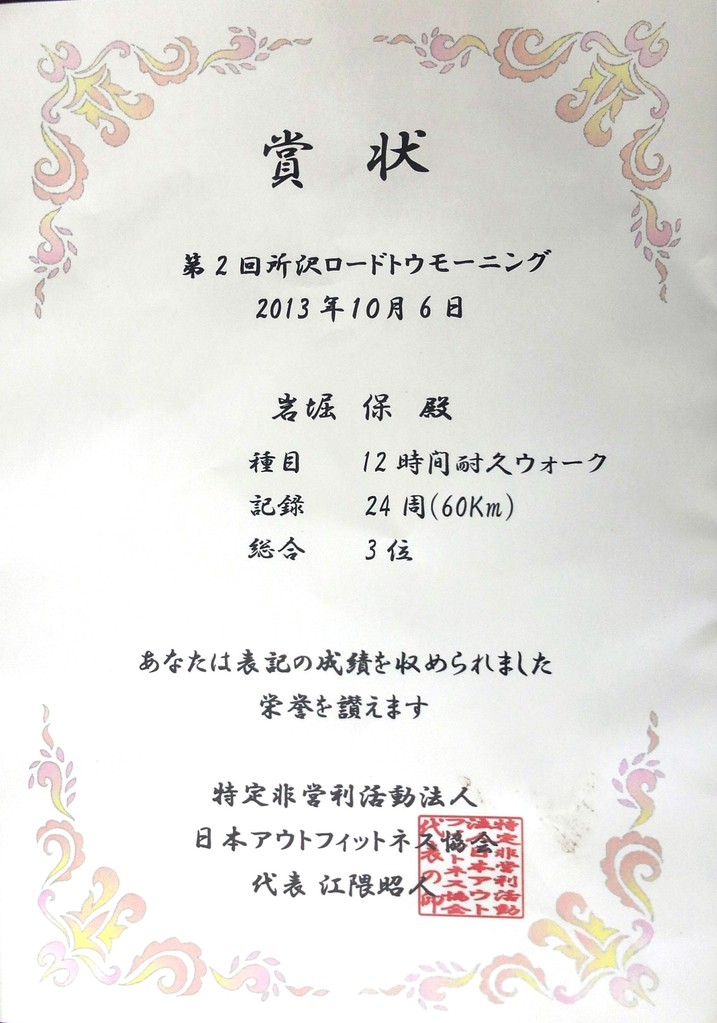 賞 状
第2回所沢ロードトウモーニング
2013年10月6日
岩堀 保 殿
種目 12時間耐久ウォーク
記録 24周(60Km)
総合 3位
あなたは表記の成績を収められました
栄誉を讃えます
特定非営利活動法人
日本アウトフィットネス協会
代表 江隈昭人
特定非営利活動
法人日本アウト
フィットネス協会
代表の印